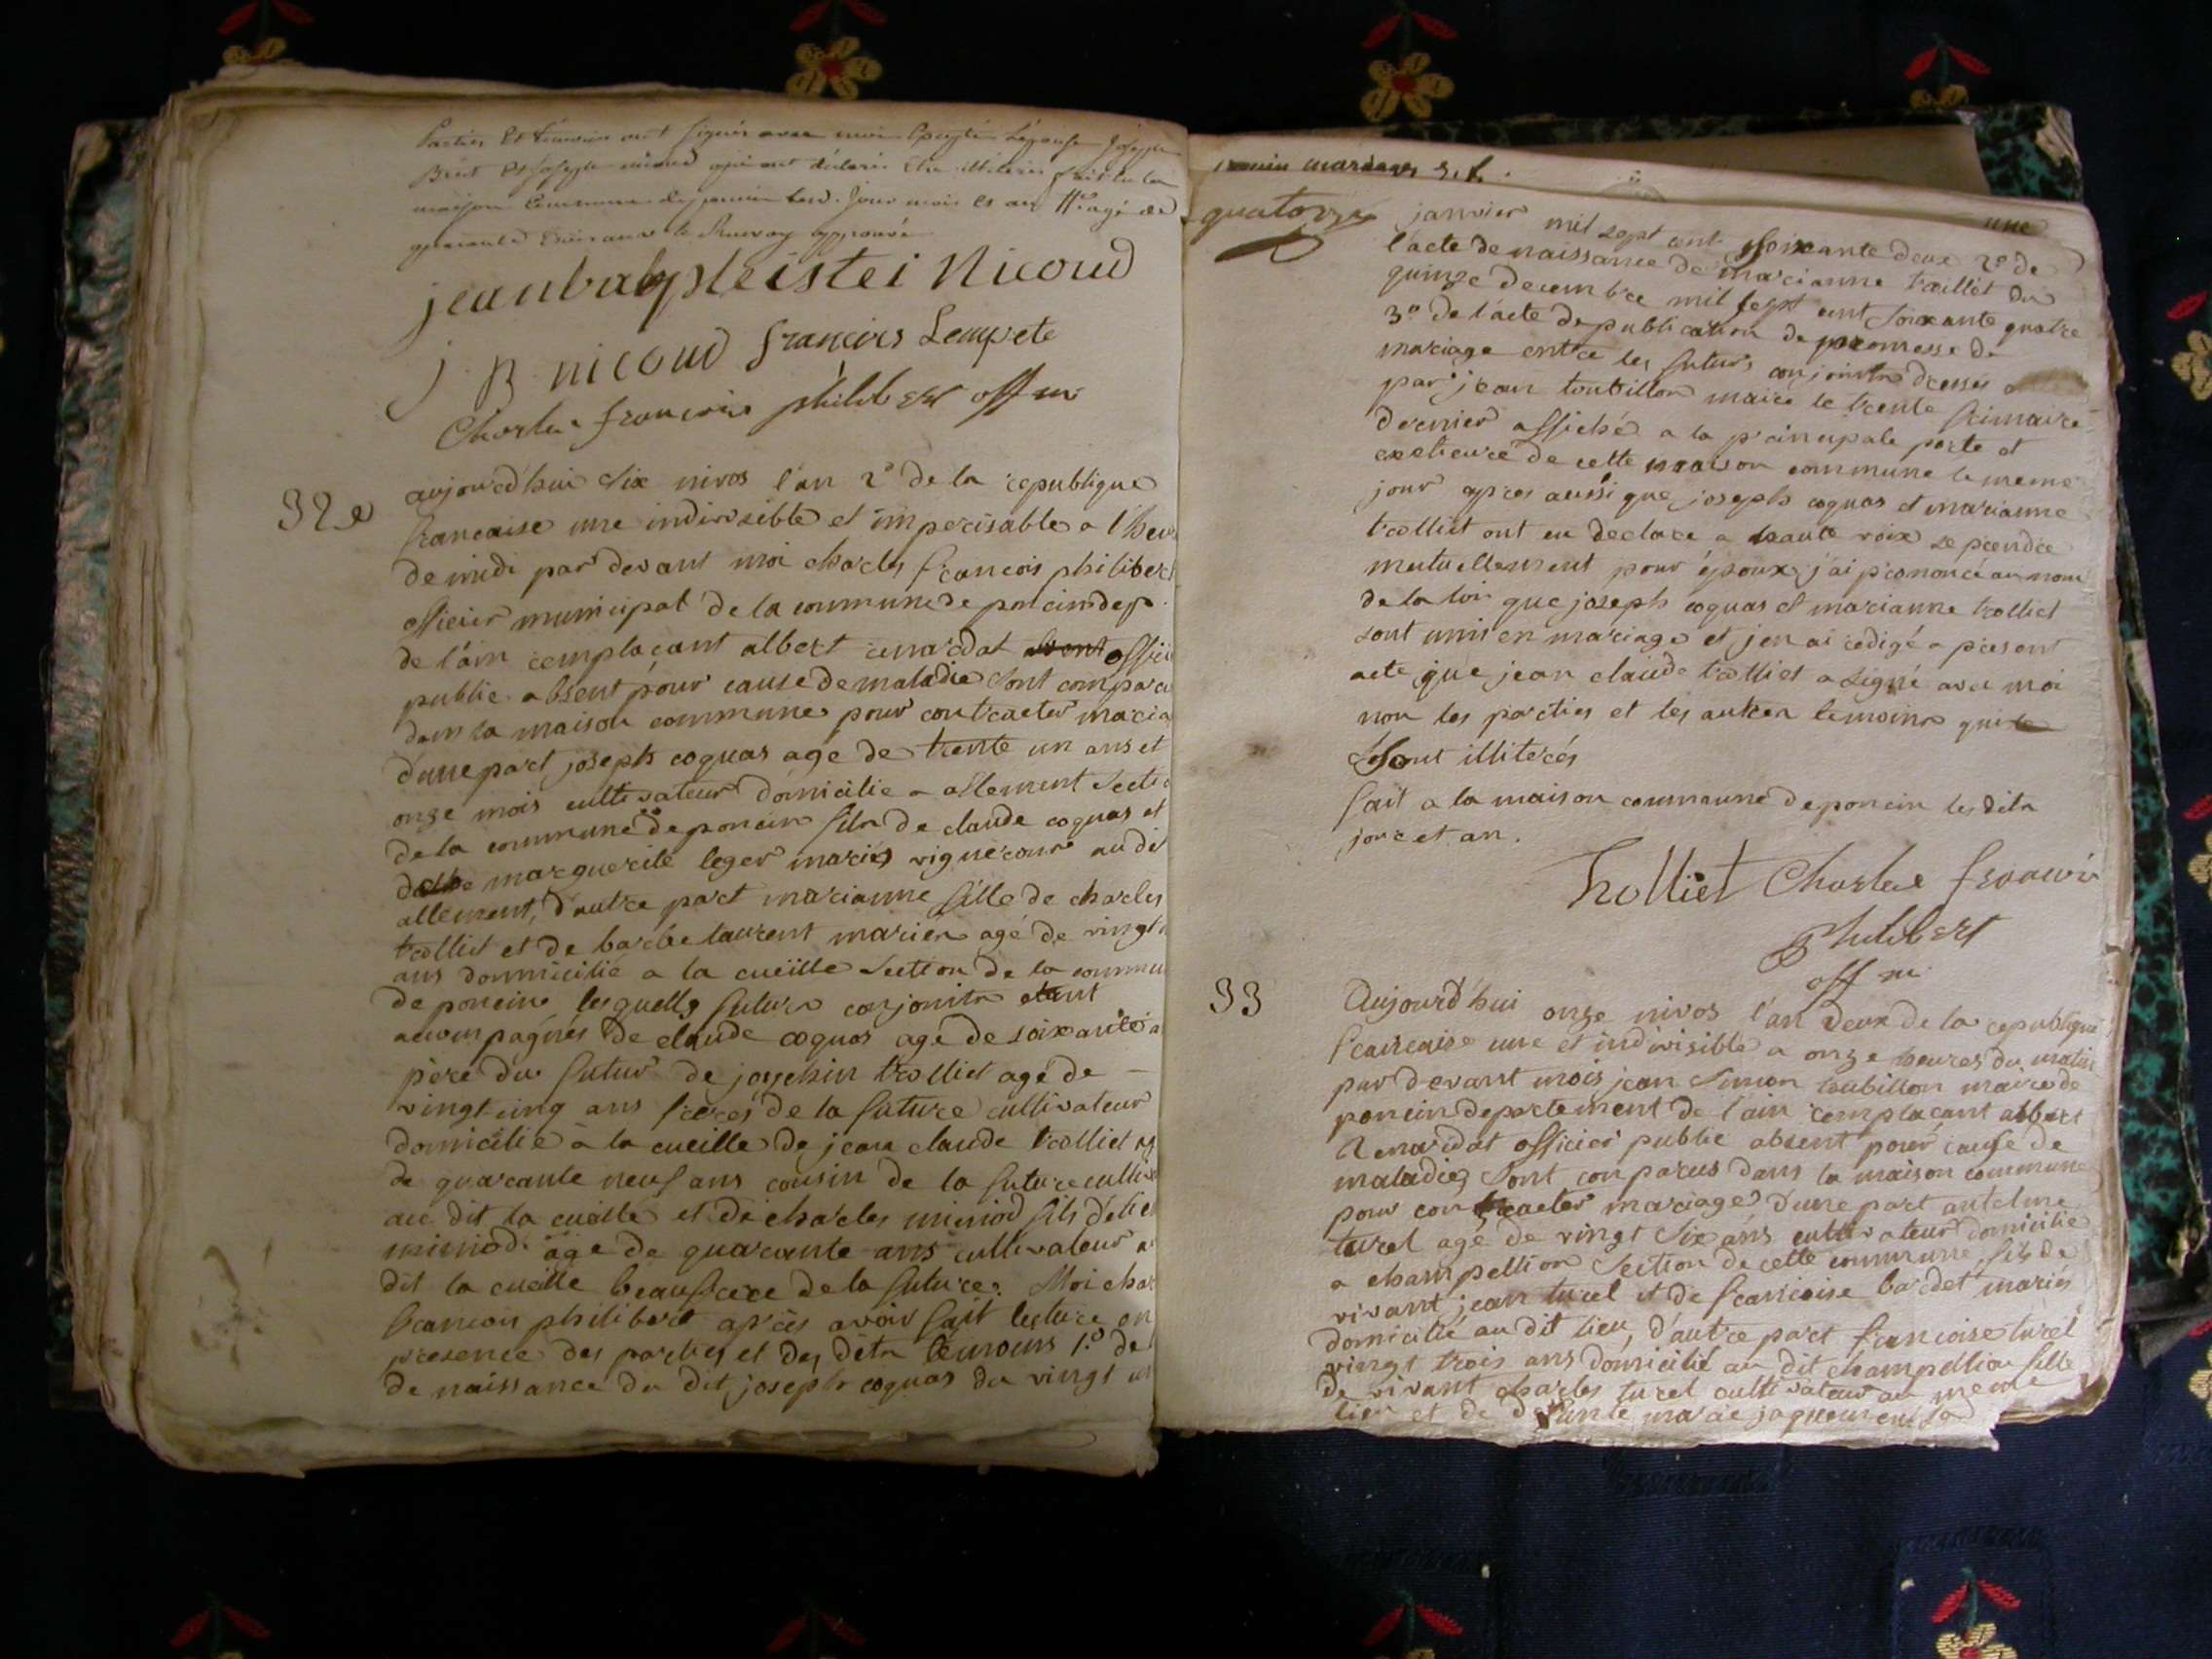 parties et témoins ont signés avec moi Excepté L'épouse Joseph
qui ont déclarés Etre illiterés fait en la
maison Commune de poncin lesd. Jour mois et an
le Renvoy approuvé
jeanbabpteistei Nicoud
J B nicoud francois Lempete
Charles francois philibert off m
32e
aujourd'hui Six nivos l'an 2e de la republique
francaise une indivisible et imperisable a l'heur
de midi par devant moi charles francois philibert
officier municipal de la commune de poncin dep.
de l'ain remplacant albert renardat officie
public absent pour cause de maladie Sont comparu
dans la maison commune pour contracter maria
dune part joseph coquas agé de trente un ans et
onze mois cultivateur domicilié a allement Secti
de la commune de poncin fils de claude coquas et
de marguerite leger mariés vignerons au dit
allement, d'autre part marianne fille de charles
trolliet et de barbe laurent mariés agé de vingt
ans dommicilié a la cueille Section de la commu
de poncin lesquells futurs conjoints etant
accompagnés de claude coquas agé de soixante a
père du futur de joachin trolliet agé de
vingt-cinq ans freres de la future cultivateur
domicilié à la cueille de jean claude trolliet ag
de quarante neuf ans cousin de la future cultiv
au dit la cueille et de charles miniod fils d'elie
miniod agé de quarante ans cultivateur a
dit la cueille beaufrere de la future. Moi char
francois philibert après avoir fait lecture en
presence des parties et des dits témoins 1.o de
de naissance du dit joseph coquas du vingt un
poncin mariages
quatorze
janvier mil sept cent soixante deux 2.o de
une
l'acte de naissance de marianne trolliet du
quinze decembre mil sept cent soixante quatre
3.o de l'acte de publication de promesse de
mariage entre les futurs conjoints dressés
par jean toubillon maire le trente frimaire
dernier affiché a la principale porte et
exterieure de cette maison commune le meme
jour apres aussi que joseph coquas et marianne
trolliet ont eu declare a haute voix se prendre
mutuellement pour époux, j'ai prononcé au nom
de la loi que joseph coquas et marianne trolliet
sont unis en mariage et j'en ai redigé a present
acte que jean claude trolliet a signé avec moi
non les parties et les autres temoins qui
Sont illiterés
fait a la maison commune de poncin les dits
jour et an.
Trolliet Charles francois
Philibert
off m
33
Aujourd'hui onze nivos l'an deux de la republique
francaise une et indivisible a onze heures du matin
par devant mois jean Simon toubillon maire de
poncin departement de l'ain remplacant albert
Renardat officier public absent pour cause de
maladie, Sont comparus dans la maison commune
pour contracter mariage, Dune part antelme
turel agé de vingt Six ans cultivateur domicilié
a champellion Section de cette commune, fils de
vivant jean turel et de francoise bardet mariés
domicilié au dit lieu, d'autre part francoise turel
vingt trois ans domicilié au dit champellion fille
de vivant charles turel cultivateur au meme
lieu et de defunte marie